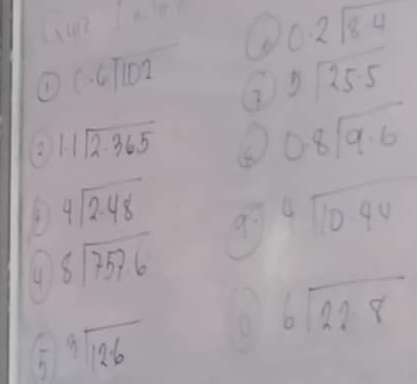 ① 0.6⟌102
② 1.1⟌2.365
③ 4⟌2.48
④ 8⟌757.6
⑤ 3⟌12.6
0.2⟌8.4
⑦ 5⟌25.5
0.8⟌9.6
9 4⟌10.44
6⟌22.8